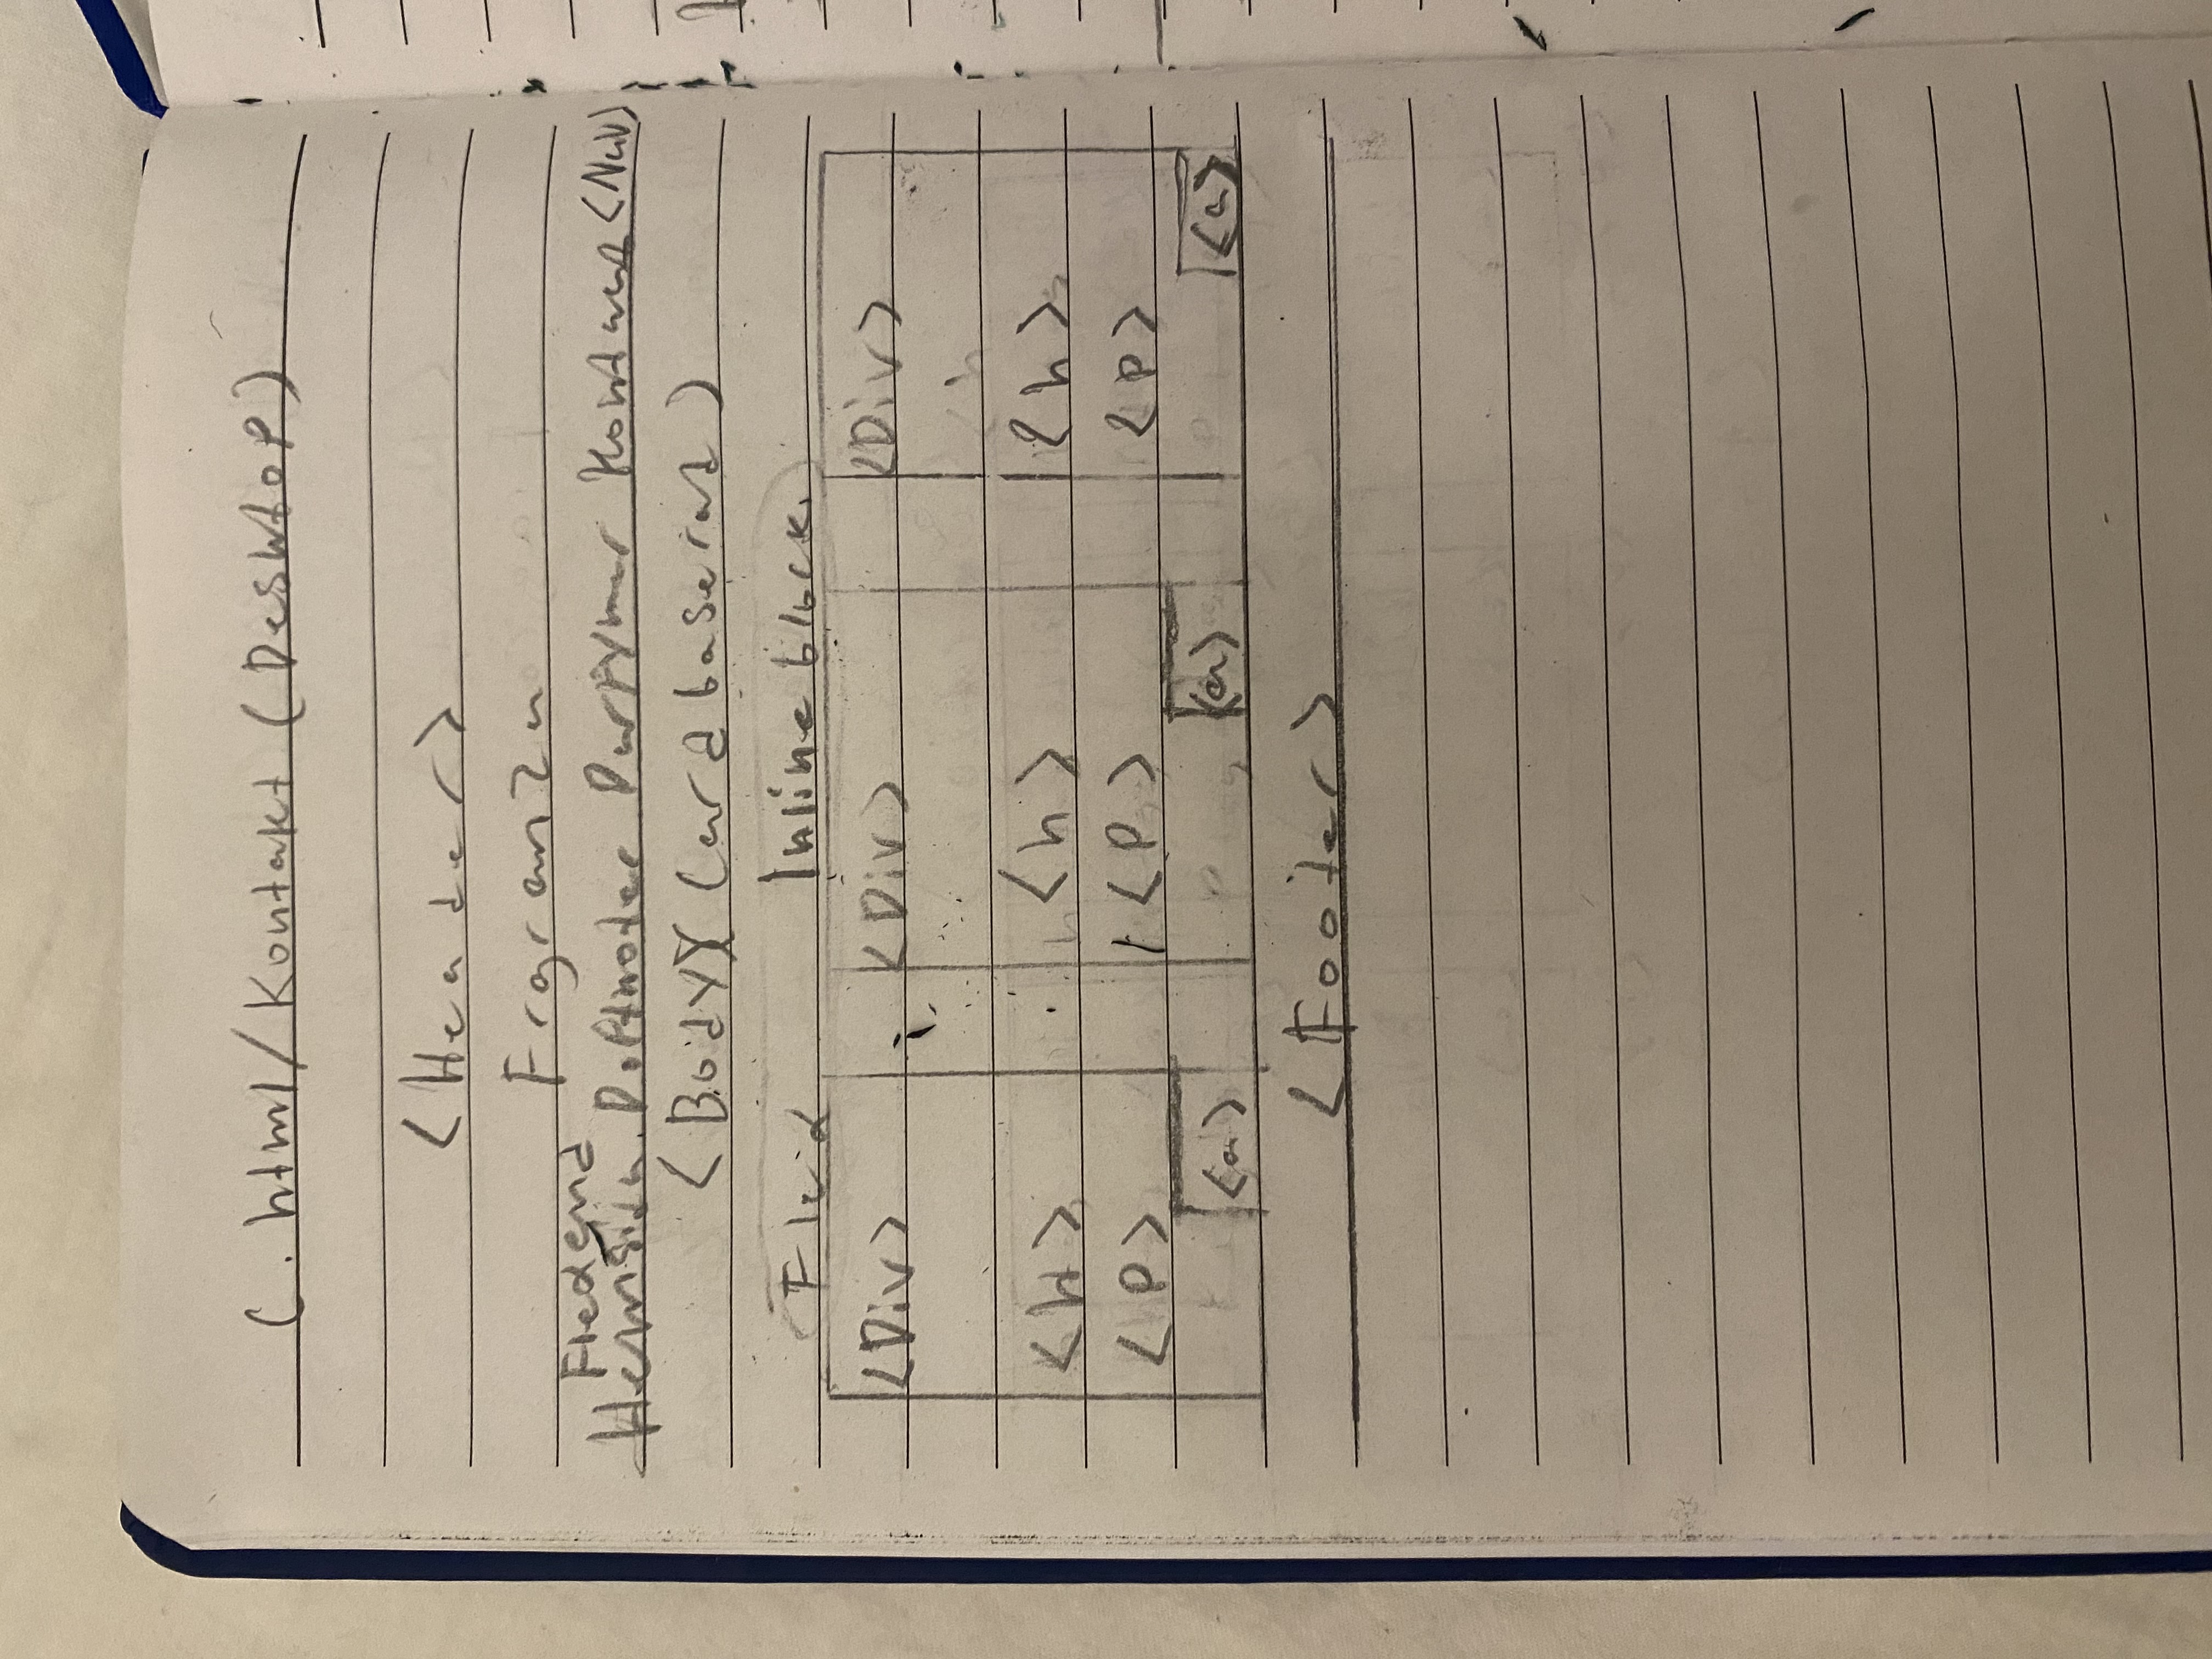 C. html/Kontakt (Desktop)
<Header>
Frgranza
Flexend
Hemsida Doftnoter Parfymer Kontakt <Nav>
<Body> (Cardbaserat)
Flex Inline block
<Div> <Div> <Div>
<h> <h> <h>
<P> <P> <P>
<a> <a> <a>
<Footer>